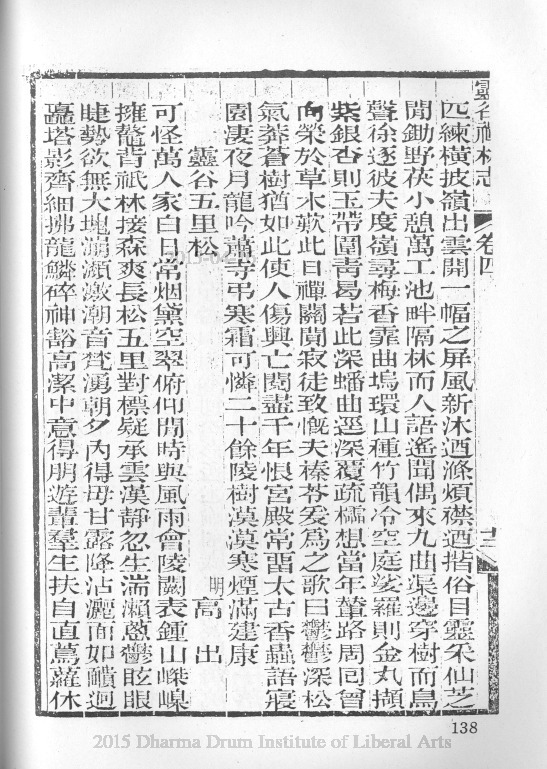 靈谷禪林志 卷四 十三
匹練橫披嶺出雲開一幅之屏風新沐迺滌煩襟迺揩俗目靈采仙芝
聞鋤野茯小憩萬工池畔隔林而人語遙聞偶來九曲渠邊穿樹而鳥
聲徐逐彼夫度嶺尋梅香霏曲塢環山種竹韻冷空庭娑羅則金丸擷
紫銀杏則玉帶圍青曷若此深蟠曲逕深覆疏櫺想當年輦路周回曾
向榮於草木歎此日禪關闃寂徒致慨夫榛苓爰為之歌曰鬱鬱深松
氣莽蒼樹猶如此使人傷興亡閱盡千年恨宮殿常留太古香蟲語寢
園淒夜月龍吟蕭寺弔寒霜可憐二十餘陵樹漠漠寒煙滿建康
靈谷五里松
明 高出
可怪萬人家白日常烟黛空翠俯仰閒時與風雨會陵闕表鍾山嶸嵲
擁鼇背祇林接森爽長松五里對標疑承雲漢靜忽生湍瀨蔥鬱眩眼
睫勢欲無大塊崩瀨激潮音梵湧朝夕內得毋甘露降沾灑面如靧迴
飈塔影齊細拂龍鱗碎神豁高潔中意得朋遊輩羣生扶自直蔦蘿休
138
2015 Dharma Drum Institute of Liberal Arts